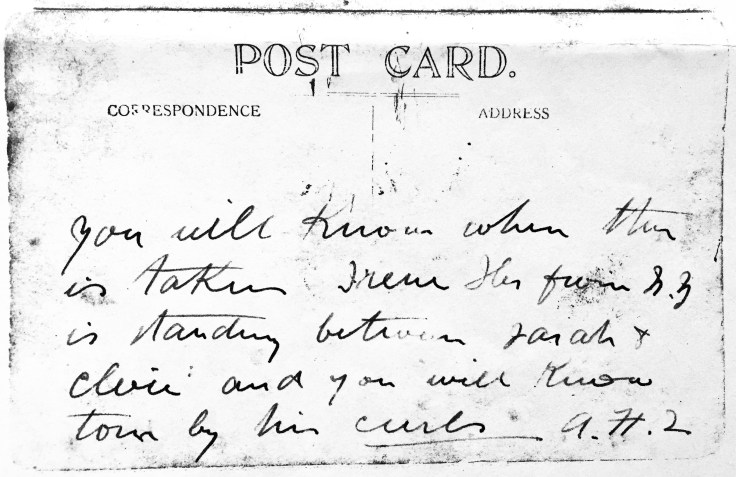 POST CARD.
CORRESPONDENCE ADDRESS
you will know when this
is taken Irene from
is standing between Sarah &
and you will know
tom by his curls A.H.L